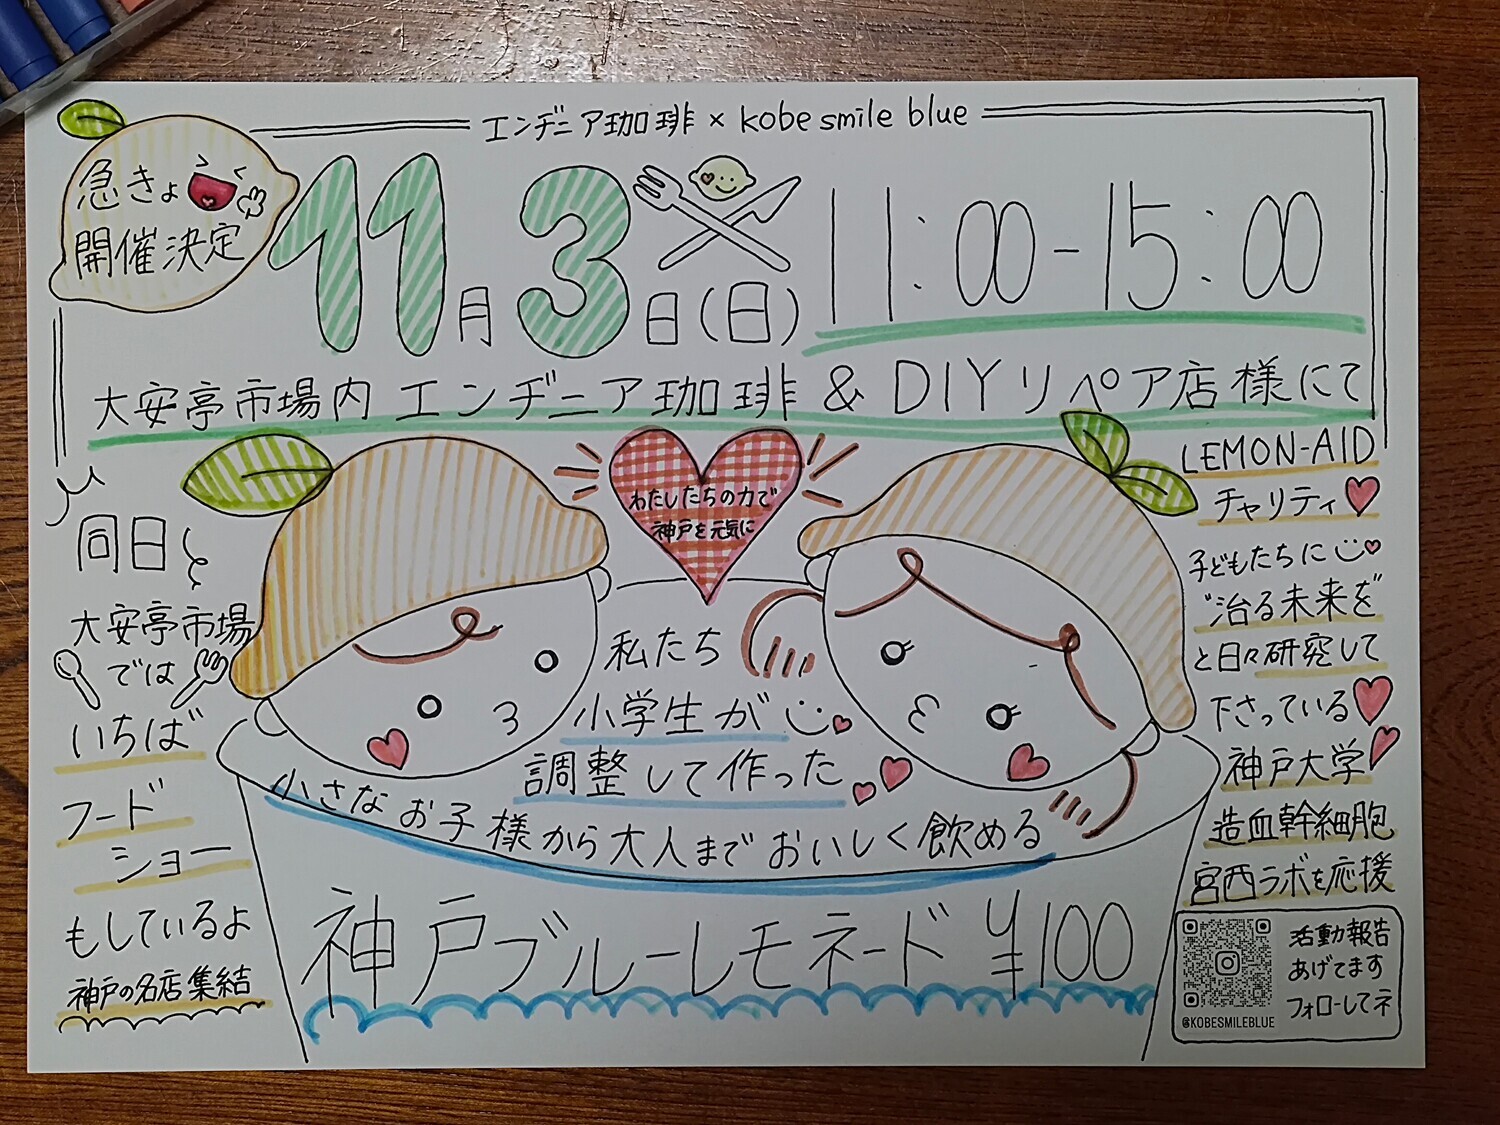 エンヂニア珈琲 × kobe smile blue
急きょ
開催決定
11月3日(日) 11:00-15:00
大安亭市場内 エンヂニア珈琲 & DIYリペア店様にて
わたしたちの力で
神戸を元気に
同日
大安亭市場
では
いちば
フード
ショー
もしているよ
神戸の名店集結
私たち
小学生が
調整して作った
小さなお子様から大人までおいしく飲める
神戸ブルーレモネード ¥100
LEMON-AID
チャリティ
子どもたちに
"治る未来を"
と日々研究して
下さっている
神戸大学
造血幹細胞
宮西ラボを応援
活動報告
あげてます
フォローしてネ
@KOBESMILEBLUE